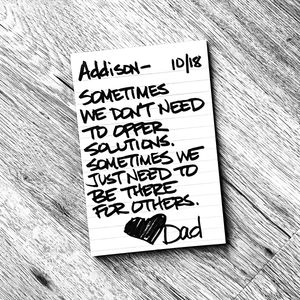 Addison- 10/18
SOMETIMES
WE DON'T NEED
TO OFFER
SOLUTIONS.
SOMETIMES WE
JUST NEED TO
BE THERE
FOR OTHERS.
Dad